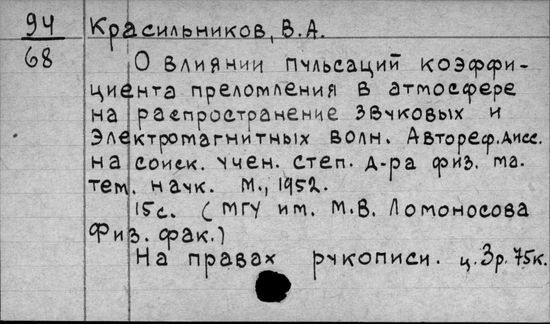 94 Красильников, В.А.
68 О влиянии пульсаций коэффи-
циента преломления в атмосфере
на распространение звуковых и
электромагнитных волн. Автореф. дисс.
на соиск. учен. степ. д-ра физ. ма-
тем. наук. М., 1952.
15с. (МГУ им. М.В. Ломоносова
Физ. фак.)
На правах рукописи. ц. 3р. 75к.